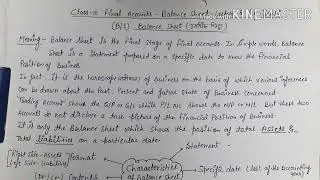 Class-11 Final Accounts - Balance Sheet
KINEMASTER
(B/S) Balance Sheet
Meaning- Balance Sheet is the Final Stage of final Accounts. In Simple words, Balance
Sheet is a Statement prepared on a Specific date to know the Financial
Position of Business.
In fact, it is the Horoscope of Business on the basis of which various inferences
Can be drawn about the Past, Present and future State of Business Concerned.
Trading Account Shows the G/P or G/L while P/L A/C Shows the N/P or N/L. But these two
Accounts do not disclose a true picture of the financial Position of Business.
It is only the Balance Sheet which shows the position of total Assets &
total liabilities on a particular date.
Statement
Right side - Assets
Left Side - liabilities
Format
Characteristics
of Balance Sheet
Specific date (last of the accounting
Contents